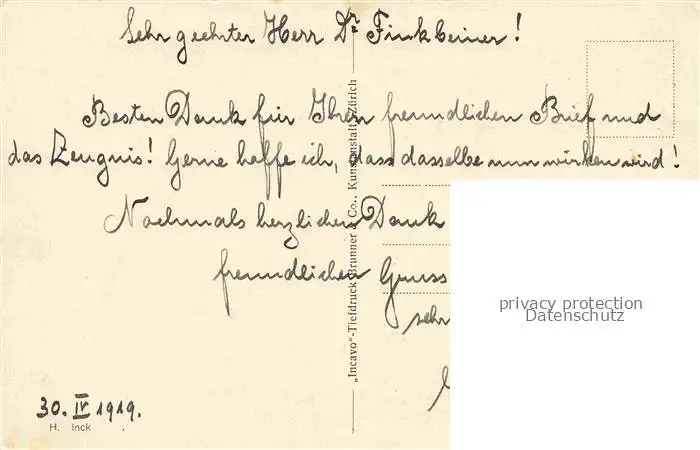 Sehr geehrter Herr Dr Finkbeiner!
Besten Dank für Ihren freundlichen Brief und
das Zeugnis! Gerne hoffe ich, dass dasselbe nun wirken wird!
Nochmals herzlichen Dank
freundlichen Gruss
sehr
30. IV 1919.
H. inck
„Incavo"-Tiefdruck Brunner & Co., Kunstanstalt, Zürich
privacy protection
Datenschutz